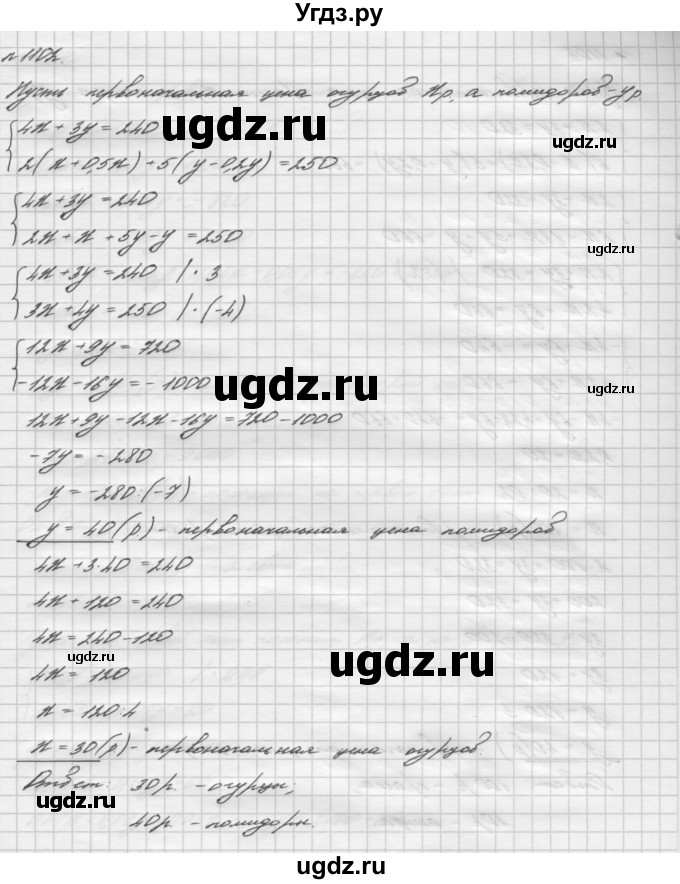 Угдз.ру
n 1102.
Пусть первоначальная цена огурцов x р, а помидоров - y р
4x + 3y = 240
2(x + 0,5x) + 5(y - 0,2y) = 250
ugdz.ru
4x + 3y = 240
2x + x + 5y - y = 250
ugdz.ru
4x + 3y = 240 | · 3
3x + 4y = 250 | · (-4)
12x + 9y = 720
-12x - 16y = - 1000
ugdz.ru
ugdz.ru
12x + 9y - 12x - 16y = 720 - 1000
-7y = - 280
y = -280 : (-7)
y = 40(р) - первоначальная цена помидоров
4x + 3 · 40 = 240
4x + 120 = 240
4x = 240 - 120
ugdz.ru
ugdz.ru
4x = 120
x = 120 : 4
x = 30(р) - первоначальная цена огурцов.
Ответ: 30 р. - огурцы,
ugdz.ru
40р. - помидоры.
ugdz.ru